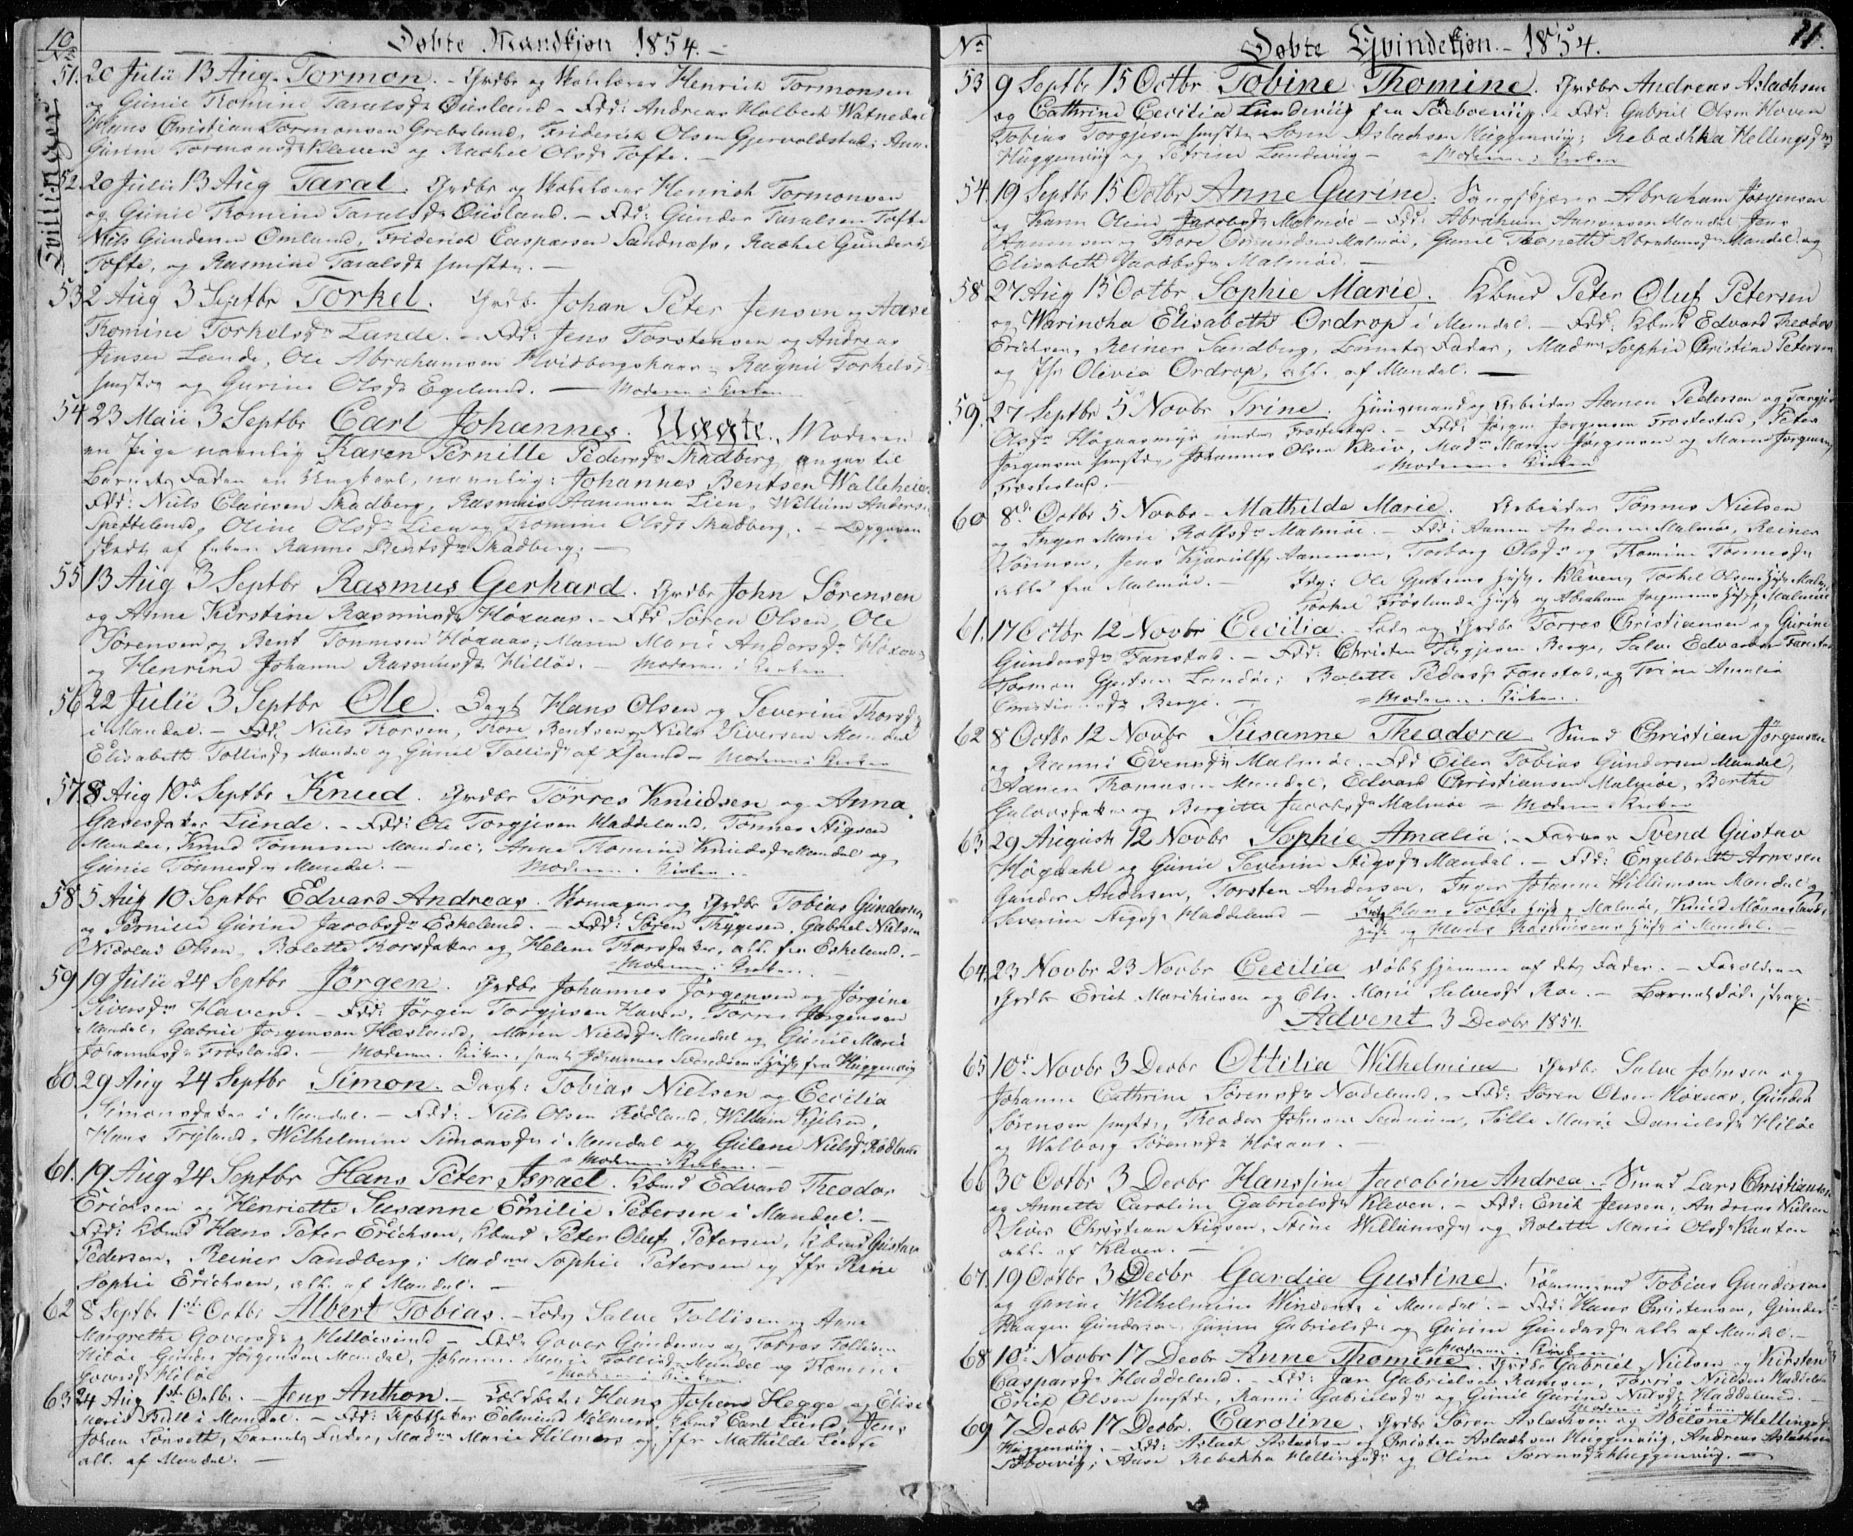 10
Døbte Mandkjøn 1854.
Tvillinger
51. 20 Julii 13 Aug. Tormon. Grdbr og Skolelærer Henrich Tormonsen
og Gunil Tomine Taralsdr Øuslend - Fdd: Andreas Holbech Watnedal
Hans Christian Tormonsen Grebslund, Friderich Olsen Gjervoldstad; Anne
Gurine Tormonsdr Kleven og Rachel Olsdr Tofte. -
52. 20 Julii 13 Aug Taral. Grdbr og Skolelærer Henrich Tormonsen
og Gunil Tomine Taralsdr Øuslend. - Fdd: Gunder Taralsen Tofte
Niels Gundersen Omland, Friderich Caspersen Sandnæss, Rachel Gundersdr
Tofte, og Rasmine Taralsdr smstds. -
53 2 Aug 3 Septbr Torkel. Grdb. Johan Peter Jensen og Aase
Tomine Torkelsdr Lande. - Fdd: Jens Torstensen og Andreas
Jensen Lande, Ole Abrahamsen Hvidbergskaar, Ragnil Torkelsdr
smstds og Gurine Olsdr Egeland. - Moderen i Kirken
54 23 Maii 3 Septbr Carl Johannes. Uægte. Moderen
en Pige navnlig Karen Pernille Pedersdr Skadberg, angav til
Barnets Fader en Ungkarl, navnlig: Johannes Bentsen Walleheie.
Fdd: Niels Clausen Skadberg, Rasmus Aanensen Lien, Willum Anders
Spettelund, Oline Olsdr Lien og Tomine Olsdr Skadberg. - Opgaven
skedt af Enken Ranne Bentsdr Skadberg. -
55 13 Aug 3 Septbr Rasmus Gerhard. Grdbr John Sørensen
og Anne Kirstine Rasmusdr Høxaas. - Fdd Søren Olsen, Ole
Sørensen og Bent Tønnesen Høxaas; Maren Marie Andersdr Høxaas
og Henrine Johanne Rasmusdr Hilløe. - Moderen i Kirken
56 22 Julii 3 Septbr Ole. Dagl. Hans Olsen og Severine Thorsdr
i Mandal. - Fdd: Niels Torsen, Tore Bentsen og Niels Siversen Mandal
Elisabeth Tollisdr Mandal og Gunil Tollisdr - Moderen i Kirken
57. 8 Aug 10de Septbr Knud. Grdbr Tørres Knudsen og Anna
Lunde. - Fdd: Ole Torgjesen Haddeland, Tønnes Stigsen
Mandal, Knud Tønnesen Mandal; Anne Tomine Knudsdr Mandal og
Gunil Tønnesdr Mandal. - Moderen i Kirken. -
58 5 Aug 10 Septbr Edvard Andreas. Skomager og Grdbr Tobias Gundersen
og Pernille Gurine Jacobsdr Eskelund. - Fdd: Søren Trygesen, Gabriel Nielsen
Nicolai Olsen, Bolette Torsdatter og Helene Thorsdatter, alle fra Eskelund. -
Moderen i Kirken. -
59 19 Julii 24 Septbr Jørgen. Grdbr Johannes Jørgensen og Jørgine
Siversdr Haven. - Fdd: Jørgen Torgjesen Haven, Torres Jørgensen
Mandal, Gabriel Jørgensen Hæslund, Maren Nielsdr Mandal og Gunil Marie
Johannesdr Frøsland. - Moderen i Kirken, samt Johannes Hustr fra Huggenviig
60. 29 Aug 24 Septbr Simon. Dagl: Tobias Nielsen og Cecilia
Simonsdatter i Mandal. - Fdd: Niels Olsen Rødland, Willum Kjelsen,
Hans Frøjlund, Wilhelmine Simonsdr i Mandal og Gulene Nielsdr Rødland
Moderen i Kirken. -
61. 19 Aug 24 Septbr Hans Peter Israel. Kbmd Edvard Theodor
Erichsen og Henriette Susanne Emilie Petersen i Mandal. -
Fdd: Kbmd Hans Peter Erichsen, Kbmd Peter Oluf Petersen, Kbmd Gustav
Pedersen, Reiner Sandberg; Madme Sophie Petersen og Jfr Rine
Sophie Erichsen, alle af Mandal. -
62 8 Septbr 1st Octbr Albert Tobias. - Lods Salve Tollisen og Anne
Margrethe Goversdr Hilløesund - Fdd: Gover Gundersen og Torres Tollisen
Hiløe Gunder Jørgensen Mandal, Johanne Marie Tollisdr Mandal og Tomine
Goversdr Hiløe Moderen i Kirken.
63 24 Aug 1st Octb. - Jens Anthon. - Hans Johan Hegge og Elise
Marie Bull i Mandal. - Fdd: Apotheker Edmund Hilmers, Kbmd Carl Lund, Jens
Johan Tønseth, Barnets Fader, Madme Marie Hilmers og Jfr Mathilde
alle af Mandal. -
No
Døbte Qvindekjøn. - 1854.
11.
53 9 Septbr 15 Octbr Tobine Thomine. Grdbr Andreas Aslachsen
og Cathrine Cecilia Lundeviig fra Søeboeviig. Fdd: Gabriel Olsen Hoven
Tobias Torgjesen smstds Søren Aslachsen Huggenviig; Rebachka Hellingsdr
Huggenviig og Petrine Lundeviig - Moderen i Kirken
54. 19 Septbr 15 Octbr Anne Gurine. Abraham Jørgensen
og Karen Oline Jacobsdr Malmøe - Fdd: Abraham Aanensen Mandal, Jens
Aanensen og Tore Osmundsen Malmøe, Gunil Tonette Abrahamsdr Mandal og
Elisabeth Jacobsdr Malmøe. -
58 27 Aug 15 Octbr Sophie Marie. Kbmd Peter Oluf Petersen
og Warincha Elisabeth Ordrop i Mandal. - Fdd: Kbmd Edvard Theodor
Erichsen, Reiner Sandberg, Barnets Fader, Madme Sophie Christine Petersen
og Jfr Olivia Ordrop, alle af Mandal. -
59. 27 Septbr 5 Novbr Trine. Huusmand og Arbeider Aanen Pedersen og Torgine
Olsdr Høgaasmyr under Frostestad. - Fdd: Jørgen Jørgensen Frostestad, Peter
Jørgensen smstds, Johannes Olsen Kleiv, Madme Maren Jørgensen og Maren Jørgensen,
Frostestad. - Moderen i Kirken
60 8de Octbr 5 Novbr - Mathilde Marie. Arbeider Tønnes Nielsen
og Inger Marie Rolfsdr Malmøe. - Fdd: Aanen Andersen Malmøe, Reiner
Tønnesen, Jens Aanensen, Torborg Olsdr og Tomine Tønnesdr
alle fra Malmøe. - Indg: Ole Gjertsens Hustr Kleven, Torkel Olsens Hustr Malmøe
Torkel Frøslands Hustr og Abraham Jørgensens Hustr Malmøe
61. 17 Octbr 12 Novbr Cecilia. Lods og Grdbr Torres Christiansen og Gurine
Gundersdr Fanstad. - Fdd: Christen Torgjesen Berge, Salve Edvardsen Farestad
Tormon Gjertsen Landøe; Bolette Pedersdr Fanstad, og Trine Amalia
Christiansdr Berge. - Moderen i Kirken.
62 8 Octbr 12 Novbr Susanne Theodora - Smed Christian Jørgensen
og Ranni Evensdr Malmøe. - Fdd Eiler Tobias Gundersen Mandal,
Aanen Thomesen Mandal, Edvard Christiansen Malmøe, Berthe
og Bergitte Jacobsdr Malmøe - Moderen i Kirken
63 29 August 12 Novbr Sophie Amalia. - Farver Svend Gustav
Høgdahl og Gunil Severine Stigsdr Mandal. - Fdd: Engelbreth Arnesen
Gunder Andersen, Torsten Andersen, Inger Johanne Willumsen Mandal og
Severine Stigsdr Haddeland - Indg Hans Hustr Malmøe, Knud Mønneslands
Hustr og Hans Rasmusens Hustr i Mandal. -
64. 23 Novbr 23 Novbr Cecilia døbt hjemme af dets Fader. - Forældrene
Grdbr Erich Marthinsen og Els. Marie Salvesdr Roe. - Barnet døde strax. -
Advent 3 Decbr 1854.
65 10de Novbr 3 Decbr Ottilia Wilhelmine Grdbr Salve Johnsen og
Johanne Cathrine Sørensdr Nodelund. - Fdd: Søren Olsen Høxaas, Gunder
Sørensen smstds, Theodor Johnsen, Tille Marie Danielsdr Hiløe
og Walborg Sørensdr Høxaas. -
66 30 Octbr 3 Decbr Hansine Jacobine Andrea. - Smed Lars Christiansen
og Annette Caroline Gabrielsdr Kleven. - Fdd: Erich Jensen, Andreas Nielsen
Peter Christian Stigsen, Stine Willumsdr og Bolette Marie Olsdr
alle af Kleven. -
67. 19 Octbr 3 Decbr Gardia Gustine. Tømmermd Tobias Gundersen
og Gurine Wilhelmine Winsents i Mandal. - Fdd: Hans Christensen, Gunder
Haagen Gundersen, Gurine Gabrielsdr og Gurine Gundersdr alle af Mandal. -
Moderen i Kirken
68 10de Novbr 17 Decbr Anne Thomine. Grdbr Gabriel Nielsen og Kirsten
Caspersdr Haddeland. - Fdd: Jan Gabrielsen Ramsøe, Torris Nielsen Haddeland
Erich Olsen smstds, Ranni Gabrielsdr og Gunil Gurine Nielsdr Haddeland. -
Moderen i Kirken
69 7 Decbr 17 Decbr. Caroline. Grdbr Søren Aslachsen og Abelone Hellingsdr
Huggenviig. - Fdd: Aslach Aslachsen og Christen Aslachsen Huggenviig, Andreas Aslachsen
Søeboeviig; Aase Rebekka Hellingsdr og Oline Sørensdr Huggenviig. -